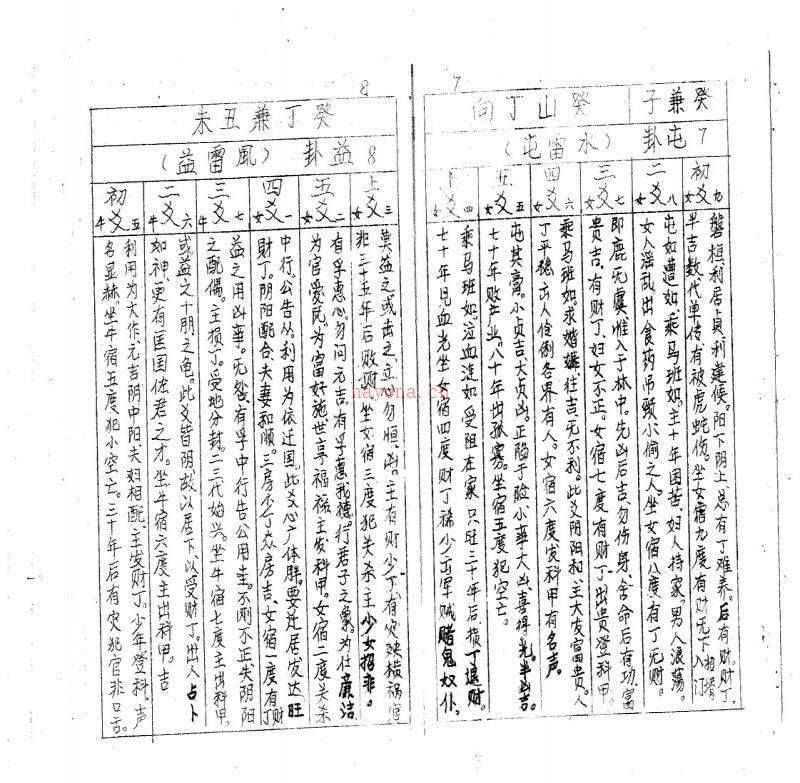 7
癸兼子
癸山丁向
7 屯卦
(水雷屯)
初爻 九 女
磐桓利居贞利建候。阳下阴上,总有丁难养。后有财。财丁
半吉数代单传有被虎蛇伤。坐女宿九度有财无丁
二爻 八 女
屯如遭如,乘马班如。主十年困苦,妇人持家。男人浪荡。
女人淫乱出食药吊颈小偷之人。坐女宿八度有丁无财。
三爻 七 女
即鹿无虞惟入于林中。先凶后吉,勿伤身,舍命后有功富
贵吉,有财丁,妇女不正。女宿七度有财丁出贵登科甲。
四爻 六 女
乘马班如。求婚媾,往吉无不利。此爻阴阳和,主大发富贵。人
丁平稳,出人伶俐各界有人。女宿六度发科甲有名声。
五爻 五 女
屯其膏。小贞吉大贞凶。正陷于险小華大凶喜得光。半凶吉。
七十年败产业。八十年出孤寡。坐宿五度犯空亡。
爻 四 女
乘马班如。泣血涟如,受阻在家只旺三十年后,损丁退财。
七十年见血光坐女宿四度财丁稀少出军贼赌鬼奴仆,
8
癸丁兼丑未
8 益卦
(風雷益)
上爻 三 女
莫益之或击之,立心勿恒,凶。主有财少丁有灾殃横祸官
非三十五年后败财。坐女宿三度犯关杀主少女招非。
五爻 二 女
有孚惠心,勿问元吉,有孚惠我德。行君子之象。为仕廉洁
为官爱民,为富好施世享福禄,主发科甲。女宿二度关杀
四爻 一 女
中行。公告从,利用为依迁国。此爻心广体胖。要迁居发达旺
财丁。阴阳配合,夫妻和顺。三房少丁众房吉、女宿一度有丁财
三爻 七 牛
益之用凶華。无咎,有孚中行告公用圭。不刚不正,失阴阳
之配偶。主损丁。受地分封。二三代始兴。坐牛宿七度主出科甲。
二爻 六 牛
或益之十朋之龟。此爻皆阴故以居下,以受财丁。出人占卜
如神,更有匡国佐君之才。坐牛宿六度主出科甲。吉
初爻 五 牛
利用为大作,元吉阴中阳夫妇相配,主发财丁。少年登科,声
名显赫。坐牛宿五度犯小空亡。三十年后有灾犯官非口舌。
nayona.cn